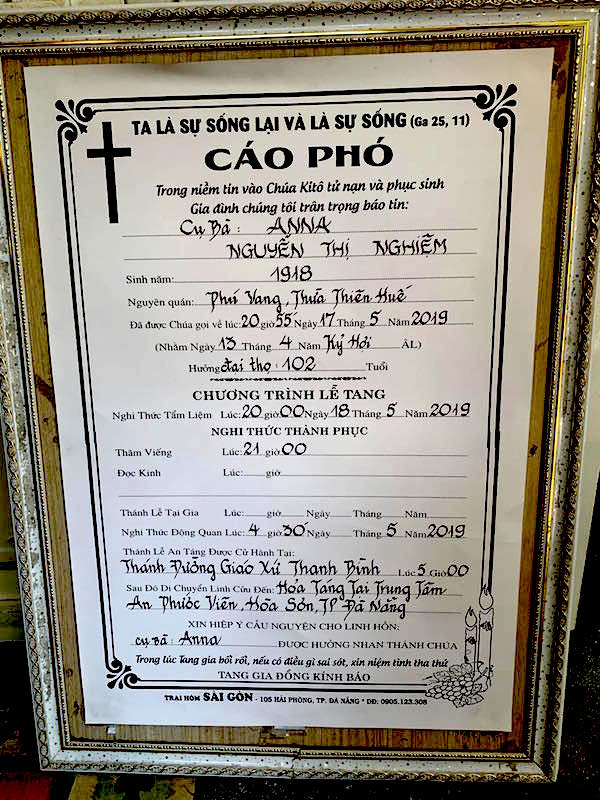 TA LÀ SỰ SỐNG LẠI VÀ LÀ SỰ SỐNG (Ga 25, 11)
CÁO PHÓ
Trong niềm tin vào Chúa Kitô tử nạn và phục sinh
Gia đình chúng tôi trân trọng báo tin:
Cụ Bà: ANNA
NGUYỄN THỊ NGHIỄM
Sinh năm: 1918
Nguyên quán: Phú Vang, Thừa Thiên Huế
Đã được Chúa gọi về lúc: 20 giờ 55' Ngày 17 Tháng 5 Năm 2019
(Nhằm Ngày 13 Tháng 4 Năm Kỷ Hợi ÂL)
Hưởng đại thọ: 102 Tuổi
CHƯƠNG TRÌNH LỄ TANG
Nghi Thức Tẩm Liệm Lúc: 20 giờ 00 Ngày 18 Tháng 5 Năm 2019
NGHI THỨC THÀNH PHỤC
Thăm Viếng Lúc: 21 giờ 00
Đọc Kinh Lúc: giờ
Thánh Lễ Tại Gia Lúc: giờ Ngày Tháng Năm
Nghi Thức Động Quan Lúc: 4 giờ 30' Ngày Tháng 5 Năm 2019
Thánh Lễ An Táng Được Cử Hành Tại:
Thánh Đường Giáo Xứ Thanh Bình Lúc 5 Giờ 00
Sau Đó Di Chuyển Linh Cữu Đến: Hỏa Táng Tại Trung Tâm
An Phước Viên, Hòa Sơn, TP Đà Nẵng
XIN HIỆP Ý CẦU NGUYỆN CHO LINH HỒN:
cụ Bà: Anna ĐƯỢC HƯỞNG NHAN THÁNH CHÚA
Trong lúc Tang gia bối rối, nếu có điều gì sai sót, xin niệm tình tha thứ
TANG GIA ĐỒNG KÍNH BÁO
TRẠI HÒM SÀI GÒN - 105 HẢI PHÒNG, TP. ĐÀ NẴNG * DĐ: 0905.123.308